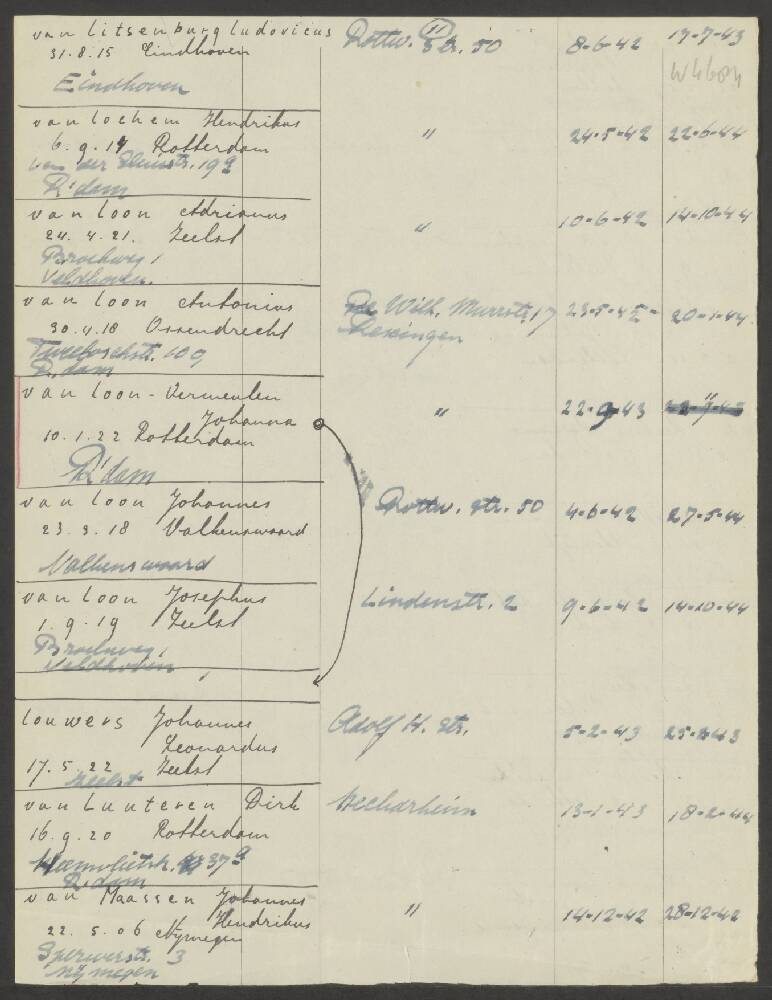 van Litsenburg Ludovicus Rottw. 11 str. 50 8-6-42 17-7-43
31.8.15 Eindhoven
W4604
Eindhoven
van Lochem Hendrikus " 24-5-42 22-6-44
6.9.19 Rotterdam
van der 19
R'dam
van Loon Adrianus " 10-6-42 14-10-44
24.4.21. Zeelst
Broekweg 1
Veldhoven.
van Loon Antonius Wilh. Murrstr. 17 23-5-42 20-1-44
30.4.18 Ossendrecht
109
R.dam
van Loon-Vermeulen " 22-9-43 "
Johanna
10.1.22 Rotterdam
R'dam
van Loon Johannes Rottw. str. 50 4-6-42 27-5-44
23.3.18 Valkenswaard
Valkenswaard
van Loon Josephus Lindenstr. 2 9-6-42 14-10-44
1.9.19 Zeelst
Broekweg 1
Veldhoven
Louwers Johannes Adolf H. str. 5-2-43 43
Leonardus
17.5.22 Zeelst
Zeelst
van Lunteren Dirk Neckarheim 13-1-43 18-2-44
16.9.20 Rotterdam
37
R.dam
van Maassen Johannes " 14-12-42 28-12-42
Hendrikus
22.5.06 Nijmegen
Sperwerstr. 3
Nijmegen